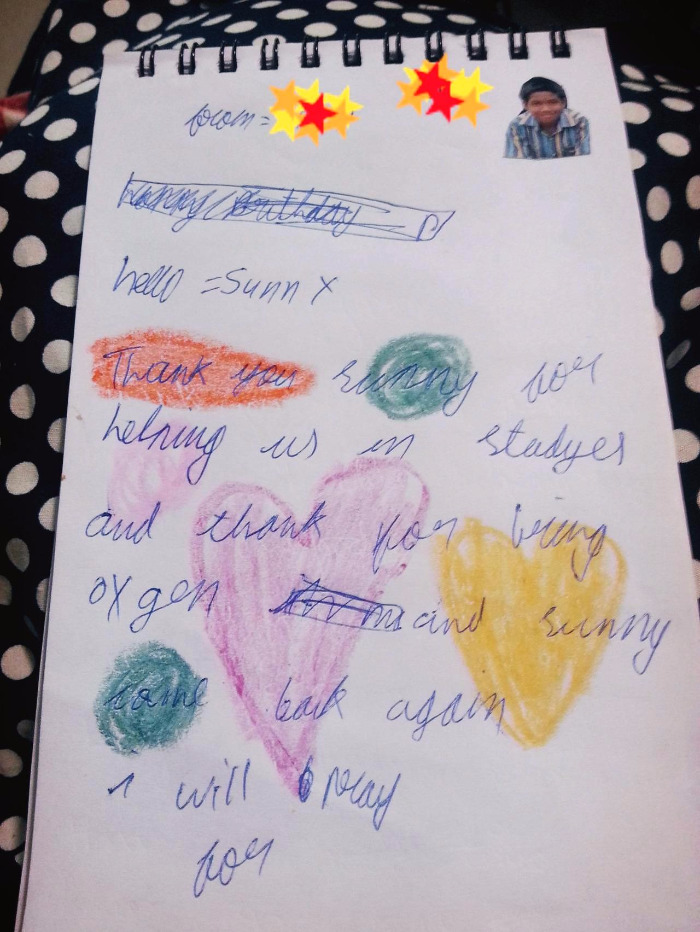 from =
happy birthday
hello = Sunn X
Thank you sunny for
helping us in stadyes
and thank for being
oxygen and sunny
come back again
i will pray
for